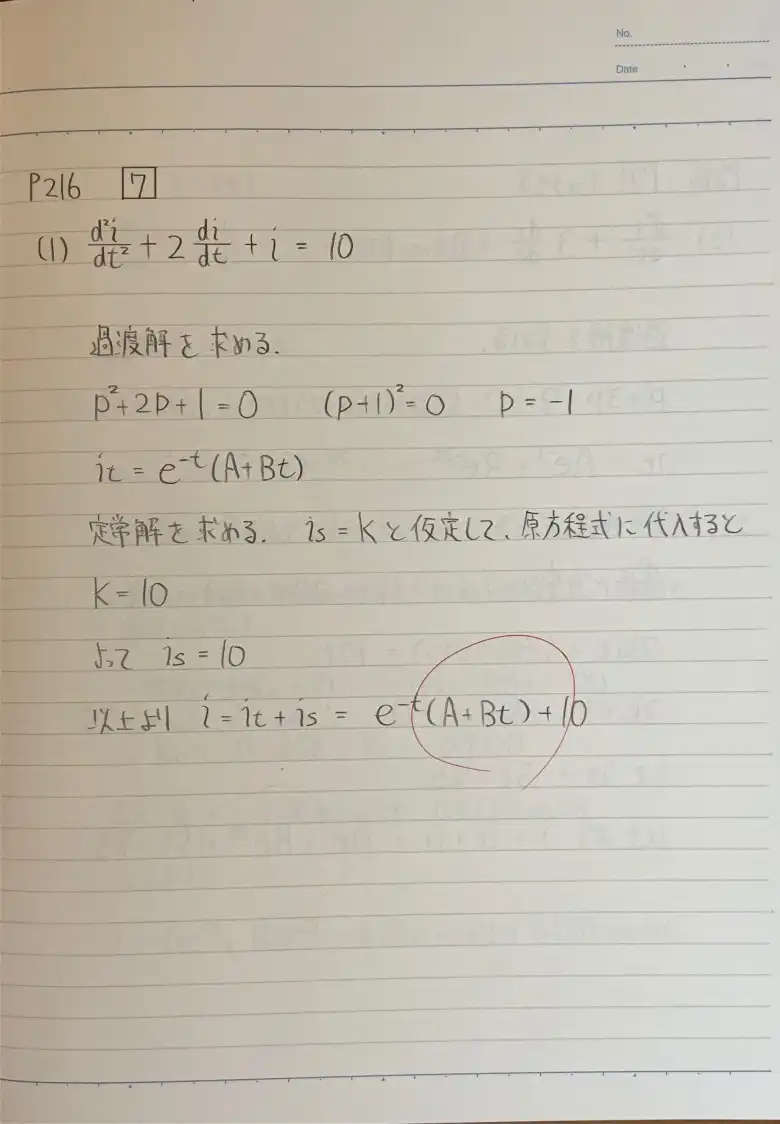 No.
Date
P216 7
(1) d²i/dt² + 2 di/dt + i = 10
過渡解を求める.
p²+2p+1=0 (p+1)²=0 p=-1
it = e⁻ᵗ(A+Bt)
定常解を求める. is = Kと仮定して、原方程式に代入すると
K=10
よって is = 10
以上より i = it + is = e⁻ᵗ(A+Bt)+10